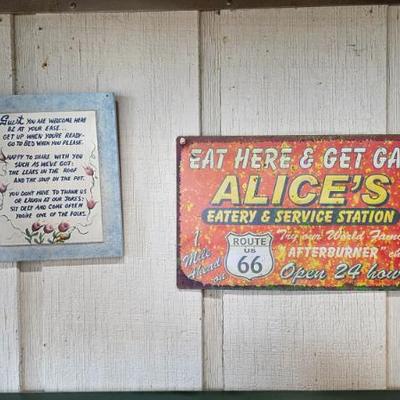 Guest YOU ARE WELCOME HERE
BE AT YOUR EASE...
GET UP WHEN YOU'RE READY-
GO TO BED WHEN YOU PLEASE.
HAPPY TO SHARE WITH YOU
SUCH AS WE'VE GOT:
THE LEAKS IN THE ROOF
AND THE SOUP ON THE POT.
YOU DON'T HAVE TO THANK US
OR LAUGH AT OUR JOKES;
SIT DEEP AND COME OFTEN
YOU'RE ONE OF THE FOLKS.
EAT HERE & GET GA
ALICE'S
EATERY & SERVICE STATION
1 Mile Ahead on
ROUTE
US
66
Try our World Famo
AFTERBURNER
Open 24 hou